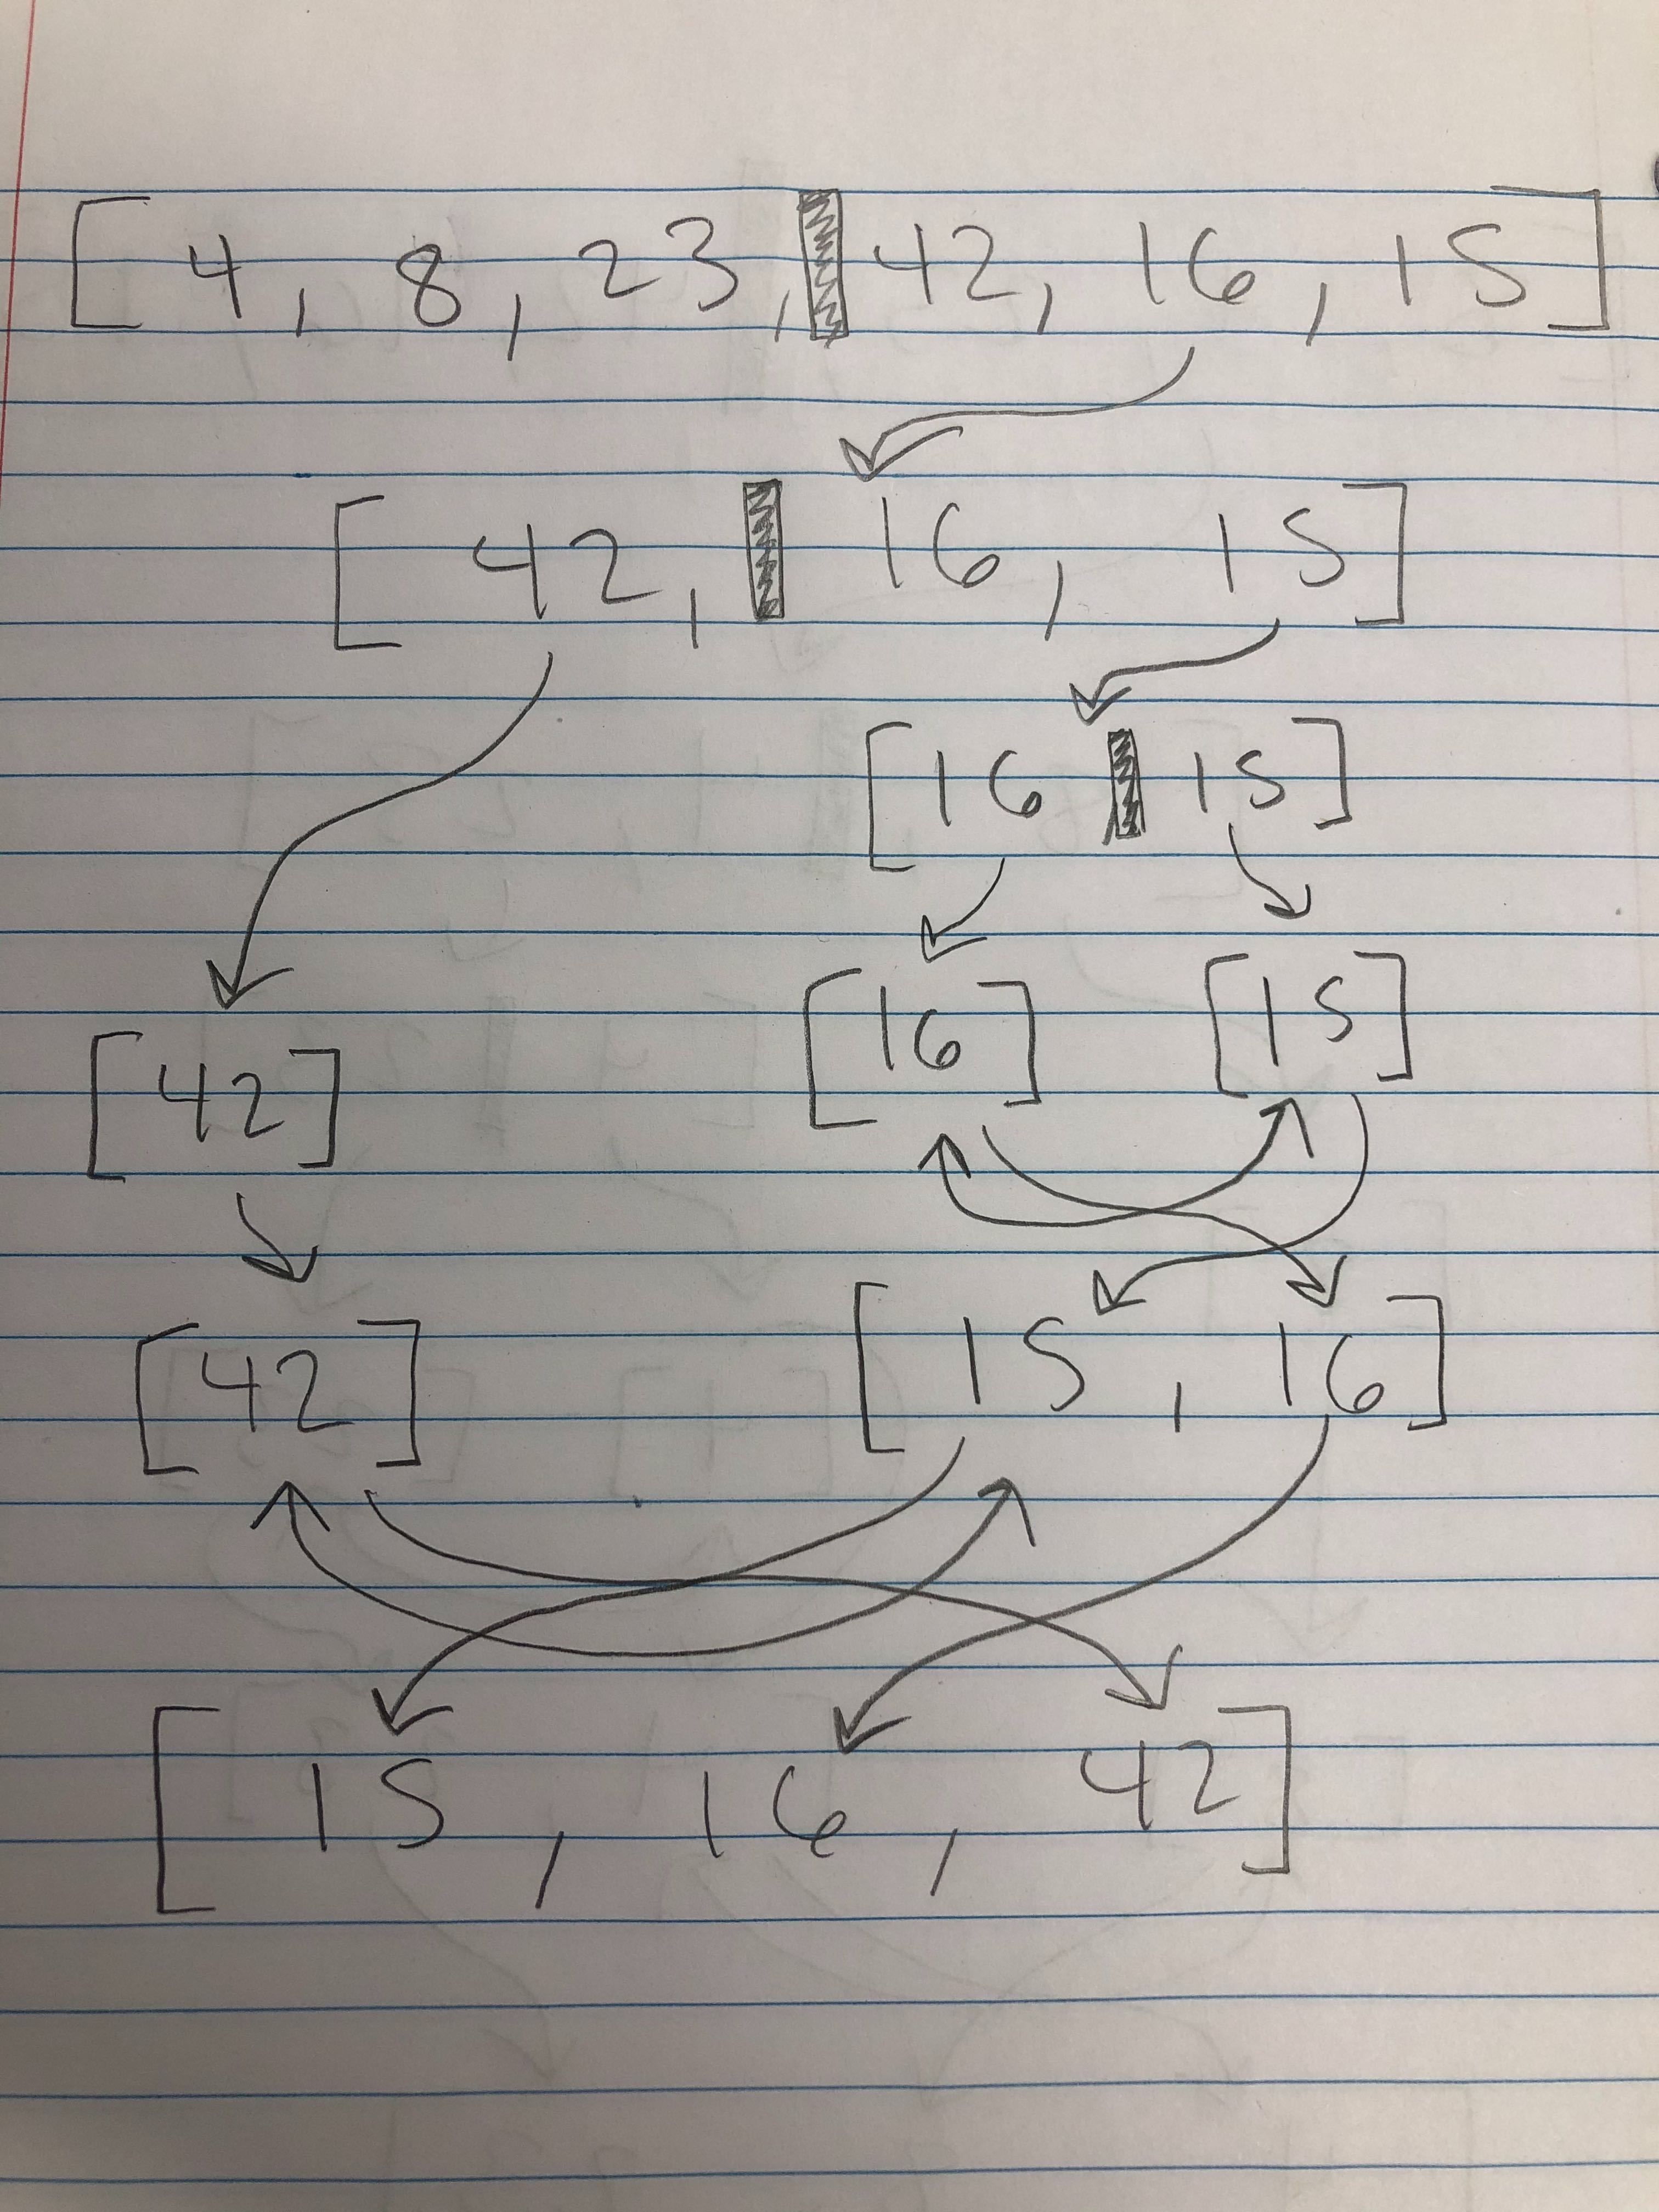 [ 4, 8, 23, 42, 16, 15 ]
[ 42, 16, 15 ]
[ 16 15 ]
[ 16 ] [ 15 ]
[ 42 ]
[ 42 ] [ 15, 16 ]
[ 15, 16, 42 ]